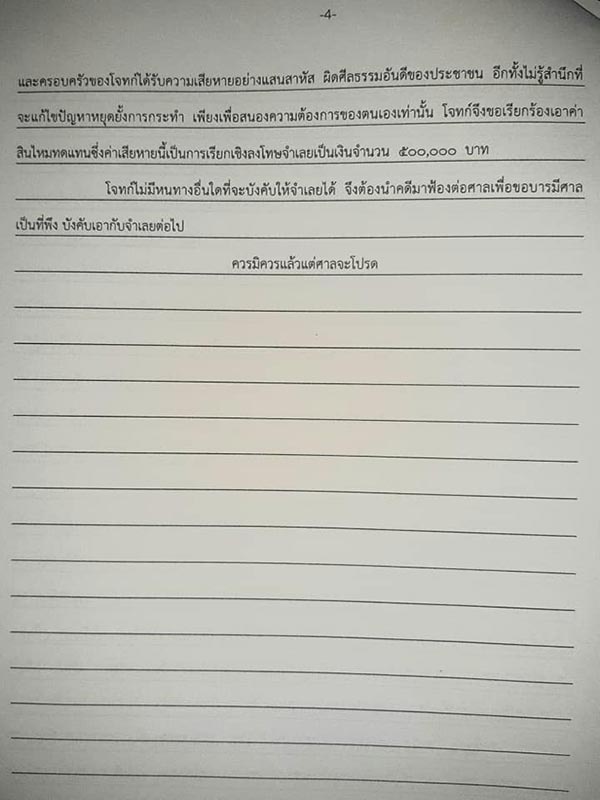 -4-
และครอบครัวของโจทก์ได้รับความเสียหายอย่างแสนสาหัส ผิดศีลธรรมอันดีของประชาชน อีกทั้งไม่รู้สำนึกที่
จะแก้ไขปัญหาหยุดยั้งการกระทำ เพียงเพื่อสนองความต้องการของตนเองเท่านั้น โจทก์จึงขอเรียกร้องเอาค่า
สินไหมทดแทนซึ่งค่าเสียหายนี้เป็นการเรียกเชิงลงโทษจำเลยเป็นเงินจำนวน ๕๐๐,๐๐๐ บาท
โจทก์ไม่มีหนทางอื่นใดที่จะบังคับให้จำเลยได้ จึงต้องนำคดีมาฟ้องต่อศาลเพื่อขอบารมีศาล
เป็นที่พึง บังคับเอากับจำเลยต่อไป
ควรมิควรแล้วแต่ศาลจะโปรด